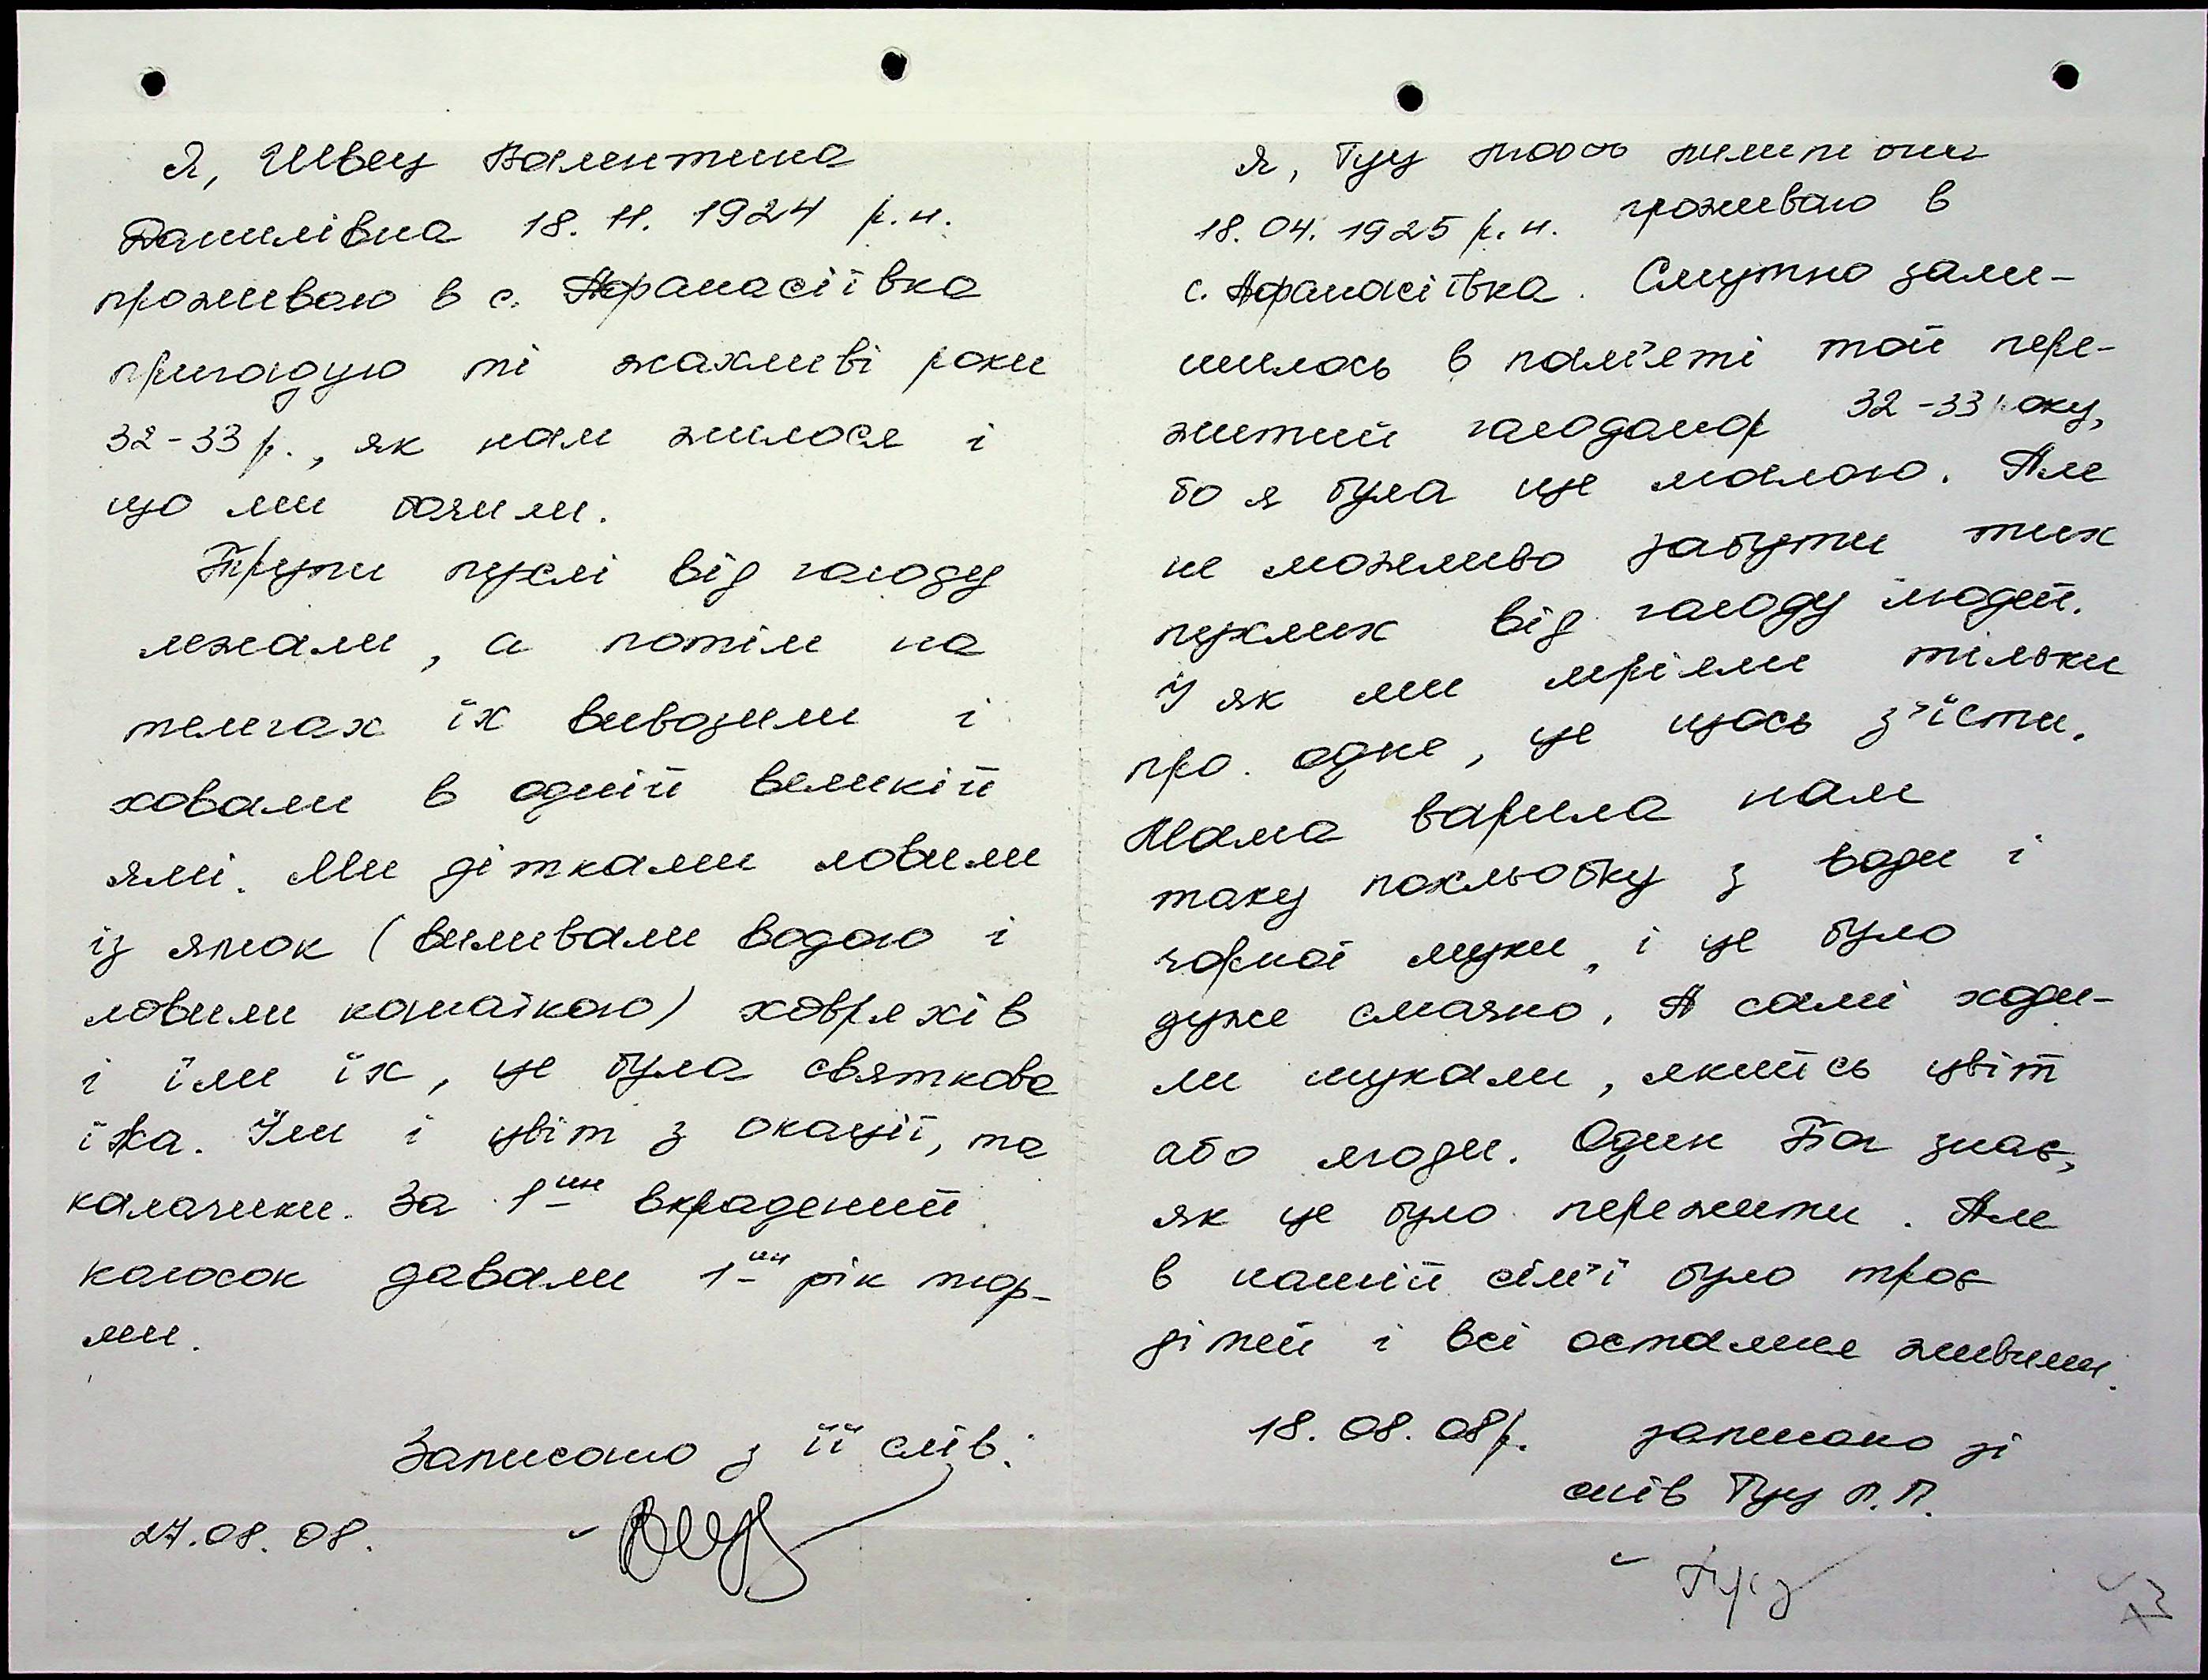 Я, Швец Валентина
Данилівна 18.11.1924 р.н.
проживаю в с. Афанасіївка
пригадую ті жахливі роки
32-33 р., як нам жилося і
що ми бачили.
Трупи пухлі від голоду
лежали, а потім на
телегах їх вивозили і
ховали в одній великій
ямі. Ми дітками ловили
із ямок (виливали водою і
ловили канайкою) ховряхів
і їли їх, це була святкова
їжа. Їли і цвіт з окації, та
калачики. За 1ин вкрадений
колосок давали 1ин рік тюр-
ми.
Записано з її слів:
27.08.08.
Я, Гуц
18.04.1925 р.н. проживаю в
с. Афанасіївка. Смутно зали-
шилось в пам'яті той пере-
житий голодамор 32-33 року,
бо я була ще малою. Але
не можливо забути тих
пухлих від голоду людей.
І як ми мріяли тільки
про одне, це щось з'їсти.
Мама варила нам
таку похльобку з води і
чорної муки, і це було
дуже смачно. А самі ходи-
ли шукали, якийсь цвіт
або ягоди. Один Бог знає,
як це було пережити. Але
в нашій сім'ї було троє
дітей і всі остались живими.
18.08.08р. записано зі
слів Гуц П.П.